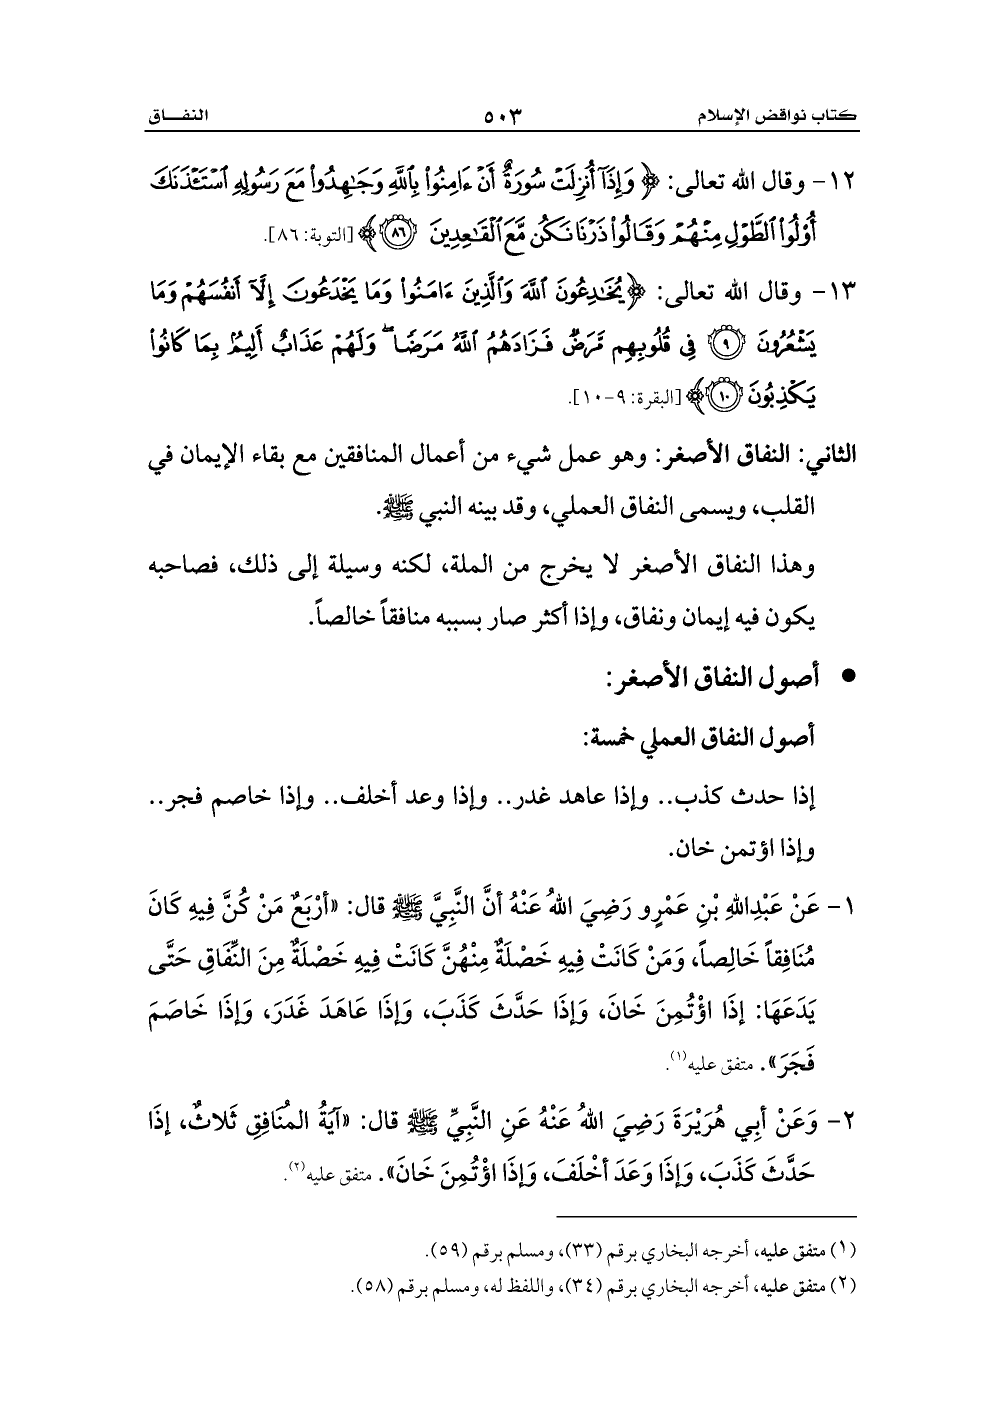 كتاب نواقض الإسلام ٥٠٣ النفـــاق
١٢- وقال الله تعالى: ﴿ وَإِذَآ أُنزِلَتْ سُورَةٌ أَنْ ءَامِنُوا۟ بِٱللَّهِ وَجَـٰهِدُوا۟ مَعَ رَسُولِهِ ٱسْتَـْٔذَنَكَ
أُو۟لُوا۟ ٱلطَّوْلِ مِنْهُمْ وَقَالُوا۟ ذَرْنَا نَكُن مَّعَ ٱلْقَـٰعِدِينَ ٨٦ ﴾ [التوبة: ٨٦].
١٣- وقال الله تعالى: ﴿ يُخَـٰدِعُونَ ٱللَّهَ وَٱلَّذِينَ ءَامَنُوا۟ وَمَا يَخْدَعُونَ إِلَّآ أَنفُسَهُمْ وَمَا
يَشْعُرُونَ ٩ فِى قُلُوبِهِم مَّرَضٌ فَزَادَهُمُ ٱللَّهُ مَرَضًا ۖ وَلَهُمْ عَذَابٌ أَلِيمٌۢ بِمَا كَانُوا۟
يَكْذِبُونَ ١٠ ﴾ [البقرة: ٩-١٠].
الثاني: النفاق الأصغر: وهو عمل شيء من أعمال المنافقين مع بقاء الإيمان في
القلب، ويسمى النفاق العملي، وقد بينه النبي ﷺ.
وهذا النفاق الأصغر لا يخرج من الملة، لكنه وسيلة إلى ذلك، فصاحبه
يكون فيه إيمان ونفاق، وإذا أكثر صار بسببه منافقاً خالصاً.
• أصول النفاق الأصغر:
أصول النفاق العملي خمسة:
إذا حدث كذب.. وإذا عاهد غدر.. وإذا وعد أخلف.. وإذا خاصم فجر..
وإذا اؤتمن خان.
١- عَنْ عَبْدِاللهِ بْنِ عَمْرٍو رَضِيَ اللهُ عَنْهُ أنَّ النَّبِيَّ ﷺ قال: «أرْبَعٌ مَنْ كُنَّ فِيهِ كَانَ
مُنَافِقاً خَالِصاً، وَمَنْ كَانَتْ فِيهِ خَصْلَةٌ مِنْهُنَّ كَانَتْ فِيهِ خَصْلَةٌ مِنَ النِّفَاقِ حَتَّى
يَدَعَهَا: إذَا اؤْتُمِنَ خَانَ، وَإذَا حَدَّثَ كَذَبَ، وَإذَا عَاهَدَ غَدَرَ، وَإذَا خَاصَمَ
فَجَرَ». متفق عليه(١).
٢- وَعَنْ أبِي هُرَيْرَةَ رَضِيَ اللهُ عَنْهُ عَنِ النَّبِيِّ ﷺ قال: «آيَةُ المُنَافِقِ ثَلاثٌ، إذَا
حَدَّثَ كَذَبَ، وَإذَا وَعَدَ أخْلَفَ، وَإذَا اؤْتُمِنَ خَانَ». متفق عليه(٢).
(١) متفق عليه، أخرجه البخاري برقم (٣٣)، ومسلم برقم (٥٩).
(٢) متفق عليه، أخرجه البخاري برقم (٣٤)، واللفظ له، ومسلم برقم (٥٨).